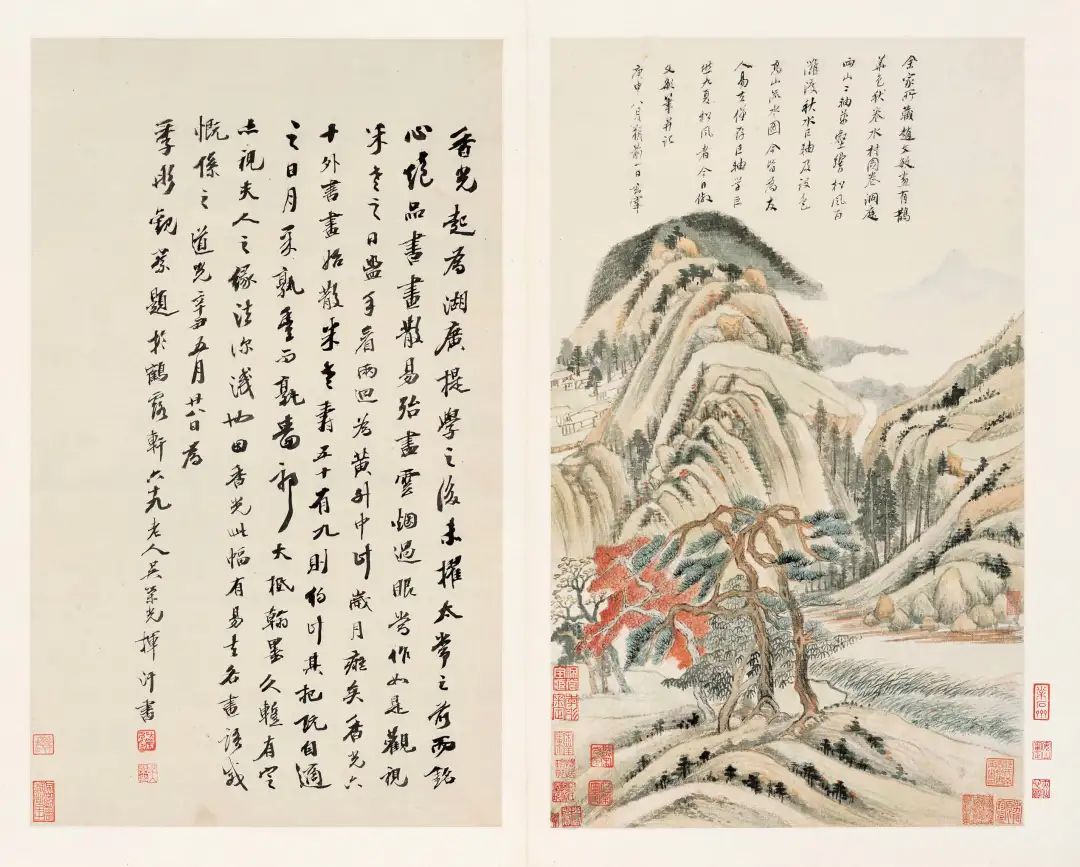 余家所藏趙文敏畫有鵲
華色秋卷水村圖卷洞庭
兩山二軸萬壑響松風百
灘渡秋水巨軸及設色
高山流水圖今皆為友
人易去僅存巨軸學巨
然九夏松風者今日倣
文敏筆并記
庚申八月朔前一日玄宰
香光起為湖廣提學之後未擢太常之前而銘
心絕品書畫散易殆盡雲烟過眼當作如是觀視
米老之日盥手看兩迴為黃中計歲月癡矣香光六
十外書畫始散米老壽五十有九則約計其把玩自適
之日月米孰盈而孰嗇耶大抵翰墨久暫有定
亦視夫人之緣法深淺也因香光此幅有易去名畫語感
慨係之道光辛丑五月廿八日為
季彤觀察題於鶴露軒六十九老人吳榮光揮汗書